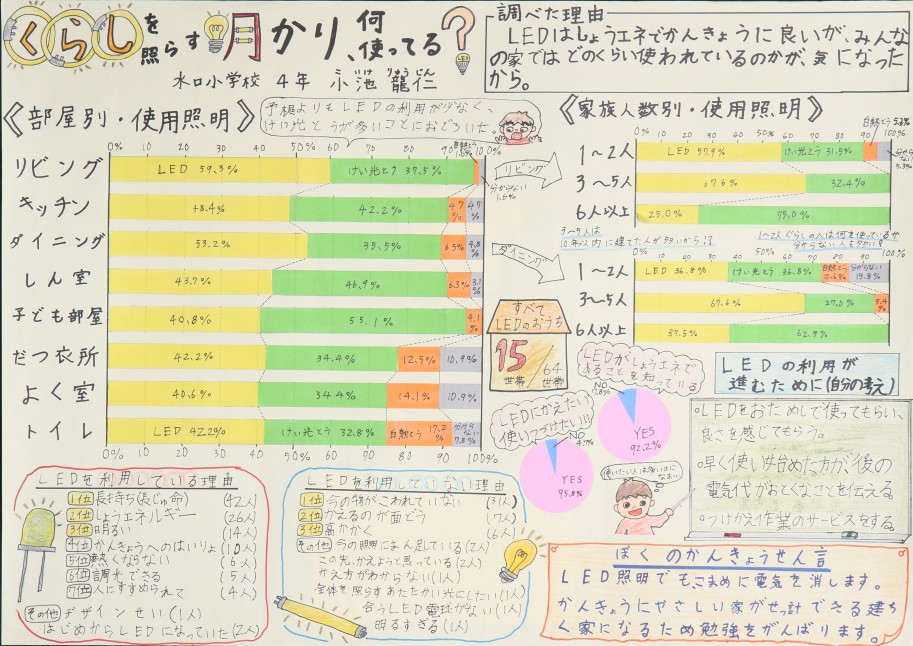 くらしを照らす明かり、何使ってる?
水口小学校 4年 小池 龍仁
調べた理由
LEDはしょうエネでかんきょうに良いが、みんな
の家ではどのくらい使われているのかが、気になった
から。
《部屋別・使用照明》
予想よりもLEDの利用が少なく、
けい光とうが多いことにおどろいた。
0% 10 20 30 40 50% 60 70 80 90 100%
リビング LED 59.3% けい光とう 37.5% 分からない 1.6%
キッチン 48.4% 42.2% 4.7% 4.7%
ダイニング 53.2% 35.5% 6.5% 4.8%
しん室 43.7% 46.9% 6.3% 3.1%
子ども部屋 40.8% 55.1% 4.1%
だつ衣所 42.2% 34.4% 12.5% 10.9%
よく室 40.6% 34.4% 14.1% 10.9%
トイレ LED 42.2% けい光とう 32.8% 白熱とう 17.2% 分からない 7.8%
0% 10 20 30 40 50% 60 70 80 90 100%
《家族人数別・使用照明》
リビング
0% 10 20 30 40 50% 60 70 80 90 100%
1〜2人 LED 57.9% けい光とう 31.5% 白熱とう 5.3% 分からない 5.3%
3〜5人 67.6% 32.4%
6人以上 25.0% 75.0%
3〜5人は
10年以内に建てた人が多いから!?
1〜2人ぐらしの人は何を使っているか
分からない人も多い!
ダイニング
0% 10 20 30 40 50% 60 70 80 90 100%
1〜2人 LED 36.8% けい光とう 36.8% 白熱とう 10.6% 分からない 15.8%
3〜5人 67.6% 27.0% 5.4%
6人以上 37.5% 62.5%
すべて
LEDのおうち
15世帯/64世帯
LEDがしょうエネで
あることを知っている
NO 7.8%
YES
92.2%
LEDにかえたい
使いつづけたい!!
NO 4.7%
YES
95.3%
使いたい人は多いのに
なぁ…
LEDの利用が
進むために(自分の考え)
○LEDをおためしで使ってもらい、
良さを感じてもらう。
○早く使い始めた方が、後の
電気代がおとくなことを伝える
○つけかえ作業のサービスをする
LEDを利用している理由
1位 長持ち(長じゅ命) (42人)
2位 しょうエネルギー (26人)
3位 明るい (14人)
4位 かんきょうへのはいりょ (10人)
5位 熱くならない (6人)
6位 調光できる (5人)
7位 人にすすめられて (4人)
その他 デザインせい (1人)
はじめからLEDになっていた (2人)
LEDを利用していない理由
1位 今の物がこわれていない (31人)
2位 かえるのが面どう (7人)
3位 高かかく (6人)
その他 今の照明にまん足している (2人)
この先、かえようと思っている (2人)
かえ方がわからない (1人)
全体を照らすあたたかい光にしたい (1人)
合うLED電球がない (1人)
明るすぎる (1人)
ぼくのかんきょうせん言
LED照明でもこまめに電気を消します。
かんきょうにやさしい家がせっ計できる建ち
く家になるため勉強をがんばります。